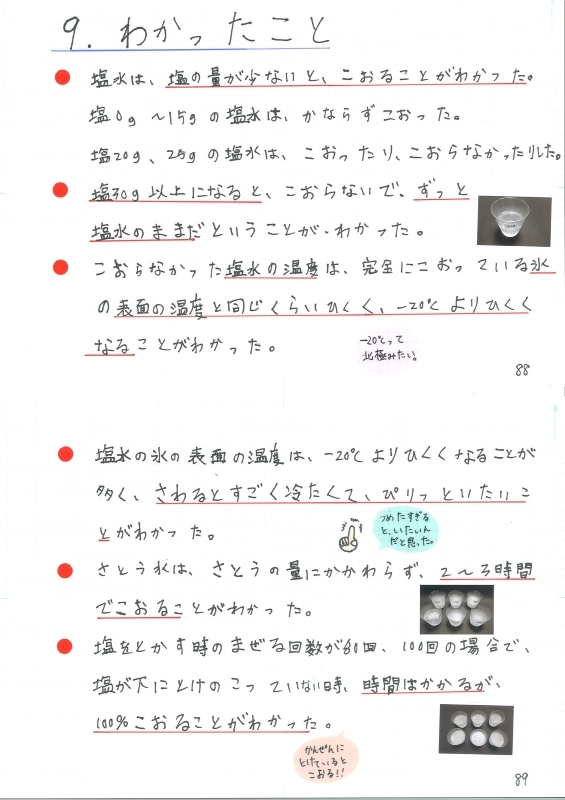 9. わかったこと
塩水は、塩の量が少ないと、こおることがわかった。
塩0g～15gの塩水は、かならずこおった。
塩20g、25gの塩水は、こおったり、こおらなかったりした。
塩30g以上になると、こおらないで、ずっと
塩水のままだということが、わかった。
こおらなかった塩水の温度は、完全にこおっている氷
の表面の温度と同じくらいひくく、-20℃よりひくく
なることがわかった。
-20℃って
北極みたい。
88
塩水の氷の表面の温度は、-20℃よりひくくなることが
多く、さわるとすごく冷たくて、ぴりっといたいこ
とがわかった。
つめたすぎる
と、いたいん
だと思った。
さとう水は、さとうの量にかかわらず、2～3時間
でこおることがわかった。
塩をとかす時のまぜる回数が60回、100回の場合で、
塩が下にとけのこっていない時、時間はかかるが、
100%こおることがわかった。
かんぜんに
とけていると
こおる!!
89